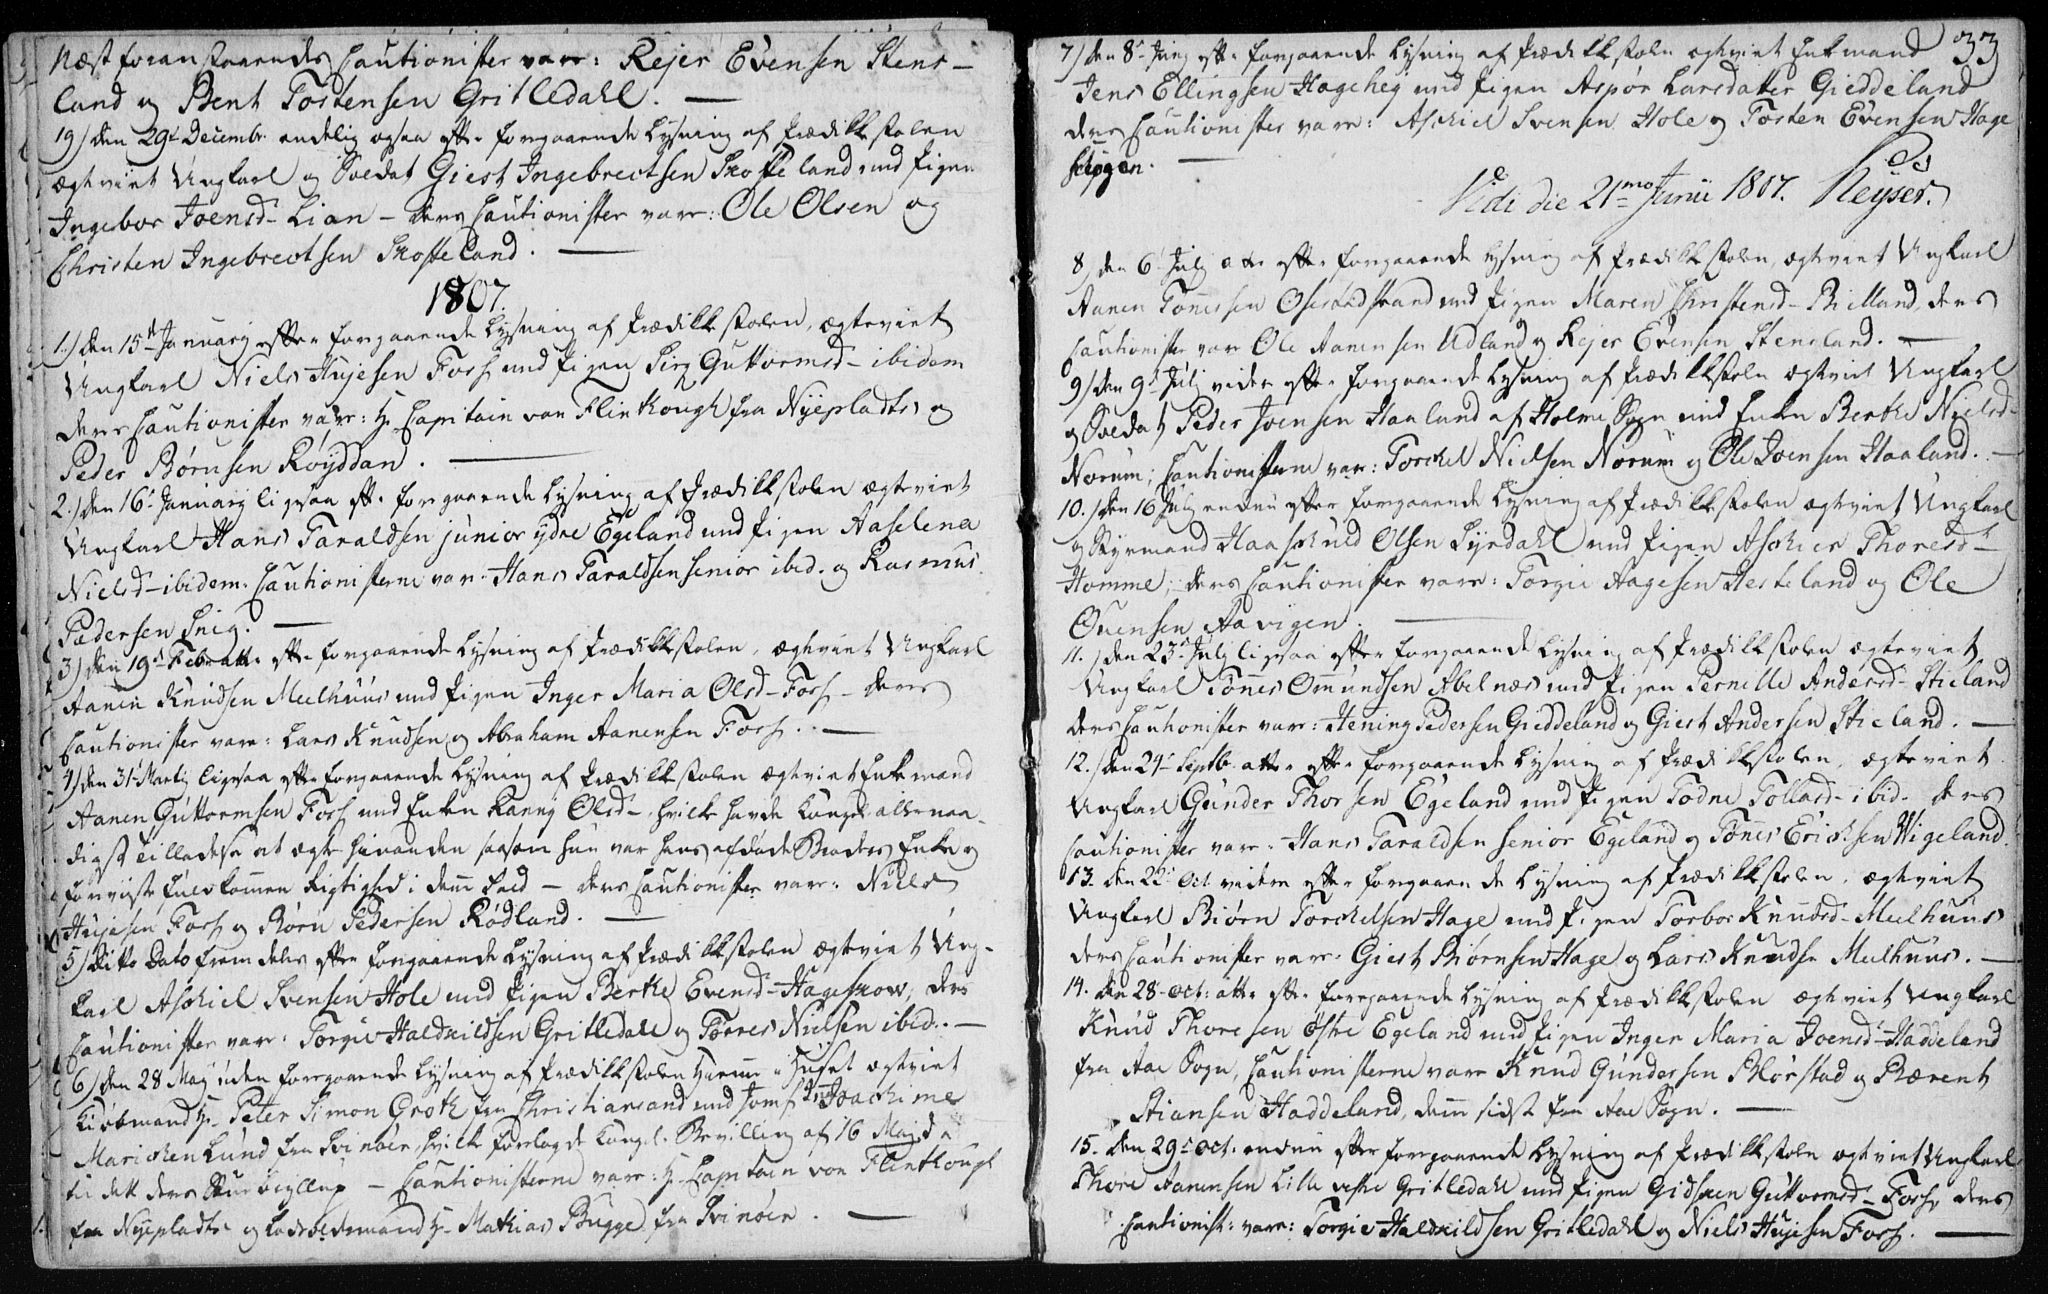 Næst foranstaaendes Cautionister vare: Rejer Evensen Stens-
land og Bent Tostensen Gritledahl. —
19) den 29de Decembr. endelig ogsaa efter forgaaende Lysning af Prædikestolen
ægteviet Ungkarl og Soldat Giest Ingebrectsen Skofteland med Pigen
Ingebor Joensd- Lian - deres Cautionister vare: Ole Olsen og
Christen Ingebrectsen Skofteland. —
1807.
1.) den 15de Januarij efter forgaaende Lysning af Prædikestolen, ægteviet
Ungkarl Niels Hujesen Foss med Pigen Siri Guttormsd- ibidem
deres Cautionister vare: Hr. Capitain von Flinthough fra Nyepladts og
Peder Børnsen Røyddan. —
2.) den 16de Januarij ligesaa efter forgaaende Lysning af Prædikestolen ægteviet
Ungkarl Hans Taraldsen junior ydre Egeland med Pigen Aaselena
Nielsd- ibidem. Cautionisterne var- Hans Taraldsen senior ibid. og Rasmus
Pedersen Snig. —
3) den 19de Febr. atter efter forgaaende Lysning af Prædikestolen, ægteviet Ungkarl
Aanen Knudsen Meelhuus med Pigen Inger Maria Olsd- Foss - deres
Cautionister vare: Lars Knudsen og Abraham Aanensen Foss. —
4) den 31te Martij ligesaa efter forgaaende Lysning af Prædikestolen ægteviet Enkemand
Aanen Guttormsen Foss med Enken Hanny Olsd- hvilke havde Kongel. allernaa-
digst Tilladelse at ægte hinanden saasom hun var hans afdøde Broders Enke og
forviiste fuldkommen Rigtighed i dem Fald - deres Cautionister vare: Niels
Hujesen Foss og Børn Pedersen Rødland. —
5) Ditto Dato fremdeles efter forgaaende Lysning af Prædikestolen ægteviet Ung-
karl Askiel Svensen Hole med Pigen Berthe Evensd- Hageskow; deres
Cautionister var: Torgie Haldkildsen Gritledahl og Tørres Nielsen ibid. —
6) den 28 Maij uden forgaaende Lysning af Prædikestolen i Huset ægteviet
Kiøbmand Hr. Peter Simon Groth fra Christiansand med Jomf. Joachime
Marichen Lund fra Svinøer, hvilke forlagde Kongel. Bevilling af 16 Maij d.
til dett deres Bryllup - Cautionisterne vare: Hr. Capitain von Flinthough
fra Nyepladts og Hr. Mathias Bugge fra Svinøer. —
33
7) den 8de Junij efter forgaaende Lysning af Prædikestolen ægteviet Enkemand
Jens Ellingsen Hagehey med Pigen Aspør Larsdatter Giedeland
deres Cautionister vare: Askiel Svensen Hole og Torsten Evensen Hage
Vidi die 21mo Junii 1807. Keyser.
8) den 6 Julij atter efter forgaaende Lysning af Prædikestolen, ægteviet Ungkarl
Aanen Tønessen Osestadstrand med Pigen Maren Christensd- Bielland, deres
Cautionister var Ole Aanensen Udland og Rejer Evensen Stensland. —
9) den 9de Julij videre efter forgaaende Lysning af Prædikestolen ægteviet Ungkarl
og Soldat Peder Joensen Haaland af Holme Sogn med Enken Berthe Nielsd-
Norum; Cautionisterne var: Torckel Nielsen Norum og Ole Joensen Haaland. —
10.) den 16 Julij endnu efter forgaaende Lysning af Prædikestolen ægteviet Ungkarl
og Styrmand Haaskuld Olsen Lyndahl med Pigen Askier Thoresd-
Homme; deres Cautionister vare: Torgie Aagesen Hesteland og Ole
Ouensen Aavigen. —
11.) den 23de Julij ligesaa efter forgaaende Lysning af Prædikestolen ægteviet
Ungkarl Tønnes Omundsen Abelnæs med Pigen Pernille Andersd- Stieland
deres Cautionister var: Hening Pedersen Gieddeland og Giest Andersen Stieland. —
12.) den 24de Septb. atter efter forgaaende Lysning af Prædikestolen, ægteviet
Ungkarl Gunder Thorsen Egeland med Pigen Todne Tollasd- ibid- deres
Cautionister vare: Hans Taraldsen senior Egeland og Tønes Ericksen Wigeland.
13. den 22de Oct. videre efter forgaaende Lysning af Prædikestolen, ægteviet
Ungkarl Biørn Torckelsen Hage med Pigen Torbor Knudsd- Meelhuus
deres Cautionister vare: Giest Biørnsen Hage og Lars Knudsen Meelhuus. —
14. den 28de Oct: atter efter forgaaende Lysning af Prædikestolen ægteviet Ungkarl
Knud Thoresen Østre Egeland med Pigen Inger Maria Joensd- Haddeland
fra Aae Sogn, Cautionisterne vare Knud Gundersen Blørstad og Bærent
Stiansen Haddeland, dem sidst fra Aae Sogn. —
15. den 29de Oct. endnu efter forgaaende Lysning af Prædikestolen ægteviet Ungkarl
Thore Aanensen Lille vestre Gritledahl med Pigen Gidsken Guttormsd- Foss, deres
Cautionist: vare: Torgie Haldkildsen Gritledahl og Niels Hujesen Foss. —